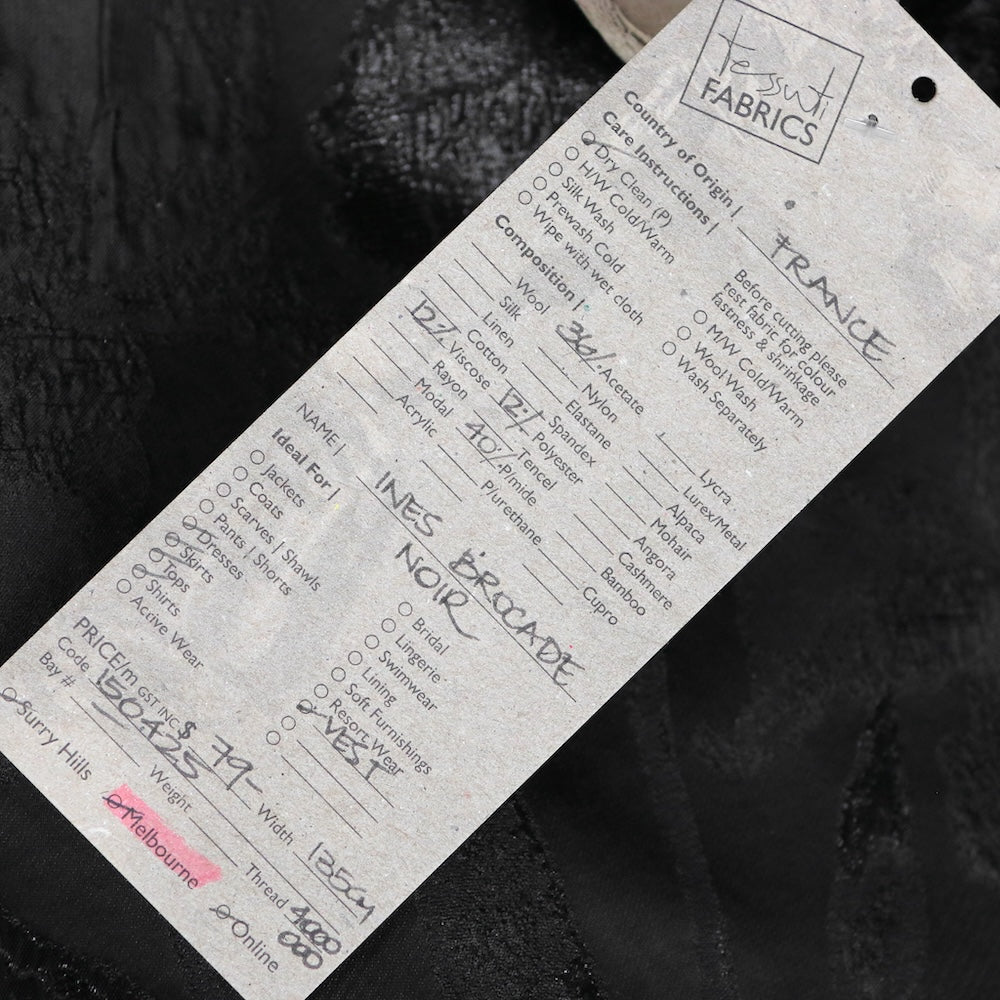 tessuti
FABRICS
Country of Origin | FRANCE
Care Instructions |
Dry Clean (P)
H/W Cold/Warm
Silk Wash
Prewash Cold
Wipe with wet cloth
Before cutting please
test fabric for colour
fastness & shrinkage
M/W Cold/Warm
Wool Wash
Wash Separately
Composition |
Wool
Silk
Linen
Cotton
12% Viscose
Rayon
Modal
Acrylic
36% Acetate
Nylon
Elastane
Spandex
12% Polyester
Tencel
40% P/mide
P/urethane
Lycra
Lurex/Metal
Alpaca
Mohair
Angora
Cashmere
Bamboo
Cupro
NAME | INES BROCADE
NOIR
Ideal For |
Jackets
Coats
Scarves | Shawls
Pants | Shorts
Dresses
Skirts
Tops
Shirts
Active Wear
Bridal
Lingerie
Swimwear
Lining
Soft Furnishings
Resort Wear
VEST
PRICE/m GST INC $ 79-
Code 150425
Width 135cm
Bay #
Weight
Thread 4000
000
Surry Hills
Melbourne
Online